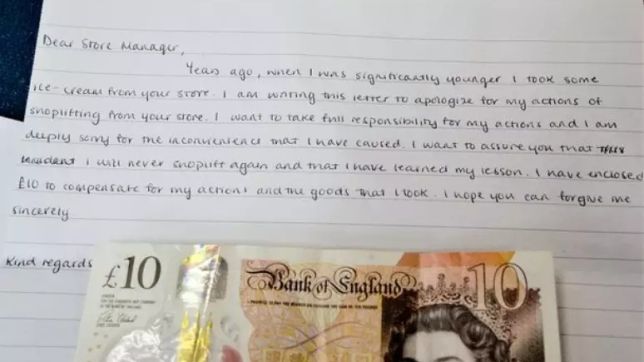 Dear Store Manager,
Years ago, when I was significantly younger I took some
ice-cream from your store. I am writing this letter to apologize for my actions of
shoplifting from your store. I want to take full responsibility for my actions and I am
deeply sorry for the inconvenience that I have caused. I want to assure you that
I will never shoplift again and that I have learned my lesson. I have enclosed
£10 to compensate for my actions and the goods that I took. I hope you can forgive me
sincerely
Kind regards
£10
Bank of England
10